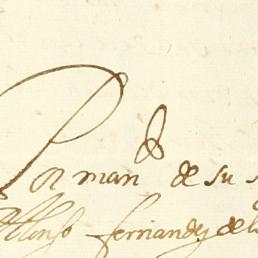 Por mando de su
Alonso fernandez de